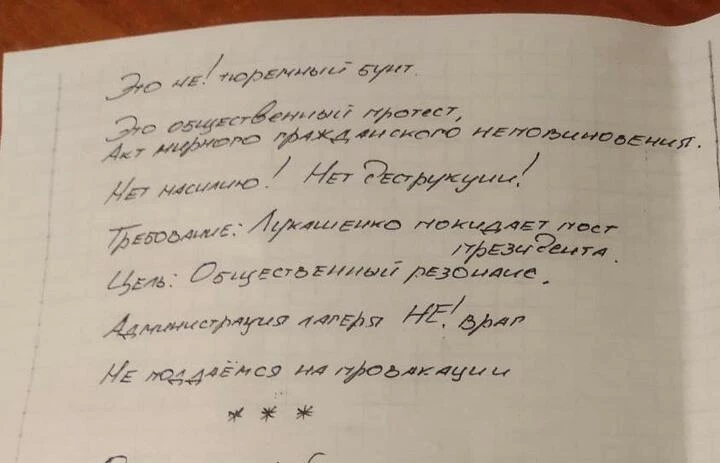 Это не! тюремный бунт.
Это общественный протест,
Акт мирного гражданского неповиновения.
Нет насилию! Нет деструкции!
Требование: Лукашенко покидает пост
президента.
Цель: Общественный резонанс.
Администрация лагеря НЕ! враг
Не поддаёмся на провакации
* * *